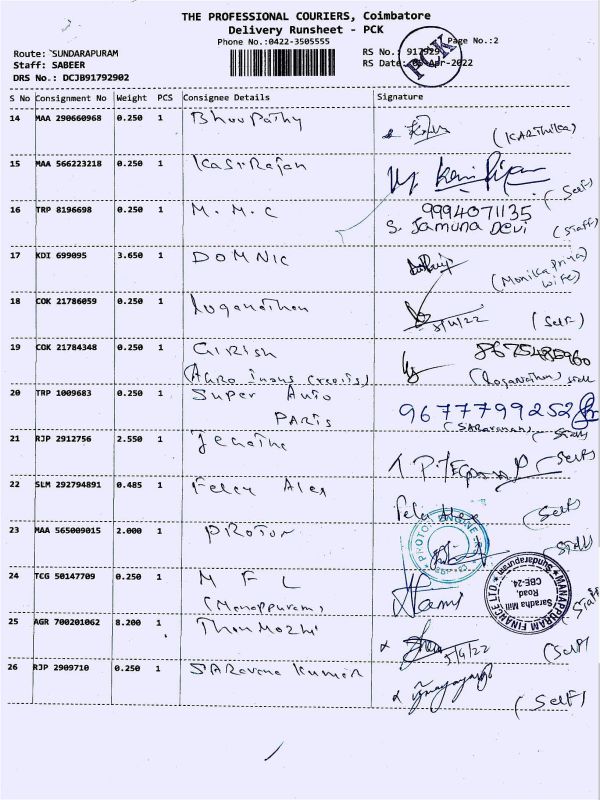 THE PROFESSIONAL COURIERS, Coimbatore
Delivery Runsheet - PCK
Phone No.:0422-3505555
Page No.:2
Route: SUNDARAPURAM
RS No.: 917929
Staff: SABEER
RS Date: 05-Apr-2022
PCK
DRS No.: DCJB91792902
S No Consignment No Weight PCS Consignee Details Signature
14 MAA 290660968 0.250 1 Bhoopathy (KARthika)
15 MAA 566223218 0.250 1 KasiRajan (Self)
16 TRP 8196698 0.250 1 M.M.C 9994071135
S. Jamuna Devi (Staff)
17 KDI 699095 3.650 1 DOMNIC (Monika Priya
wife)
18 COK 21786059 0.250 1 Loganathan 5/4/22 (Self)
19 COK 21784348 0.250 1 Girish
(Loganathan) staff
20 TRP 1009683 0.250 1 Super Auto 9677799252
PARTS (SARavanan) Staff
21 RJP 2912756 2.550 1 (Self)
22 SLM 292794891 0.485 1 Felcy Alex (Self)
23 MAA 565009015 2.000 1 PROTON PROTON ENGINE (Staff)
24 TCG 50147709 0.250 1 M F L
(Manappuram) MANAPPURAM FINANCE LTD.
Saradha Mill
Road,
Sundarapuram
CBE-24. (Staff)
25 AGR 700201062 8.200 1 ThenMozhi 5/4/22 (Self)
26 RJP 2909710 0.250 1 SARavana Kumar (Self)